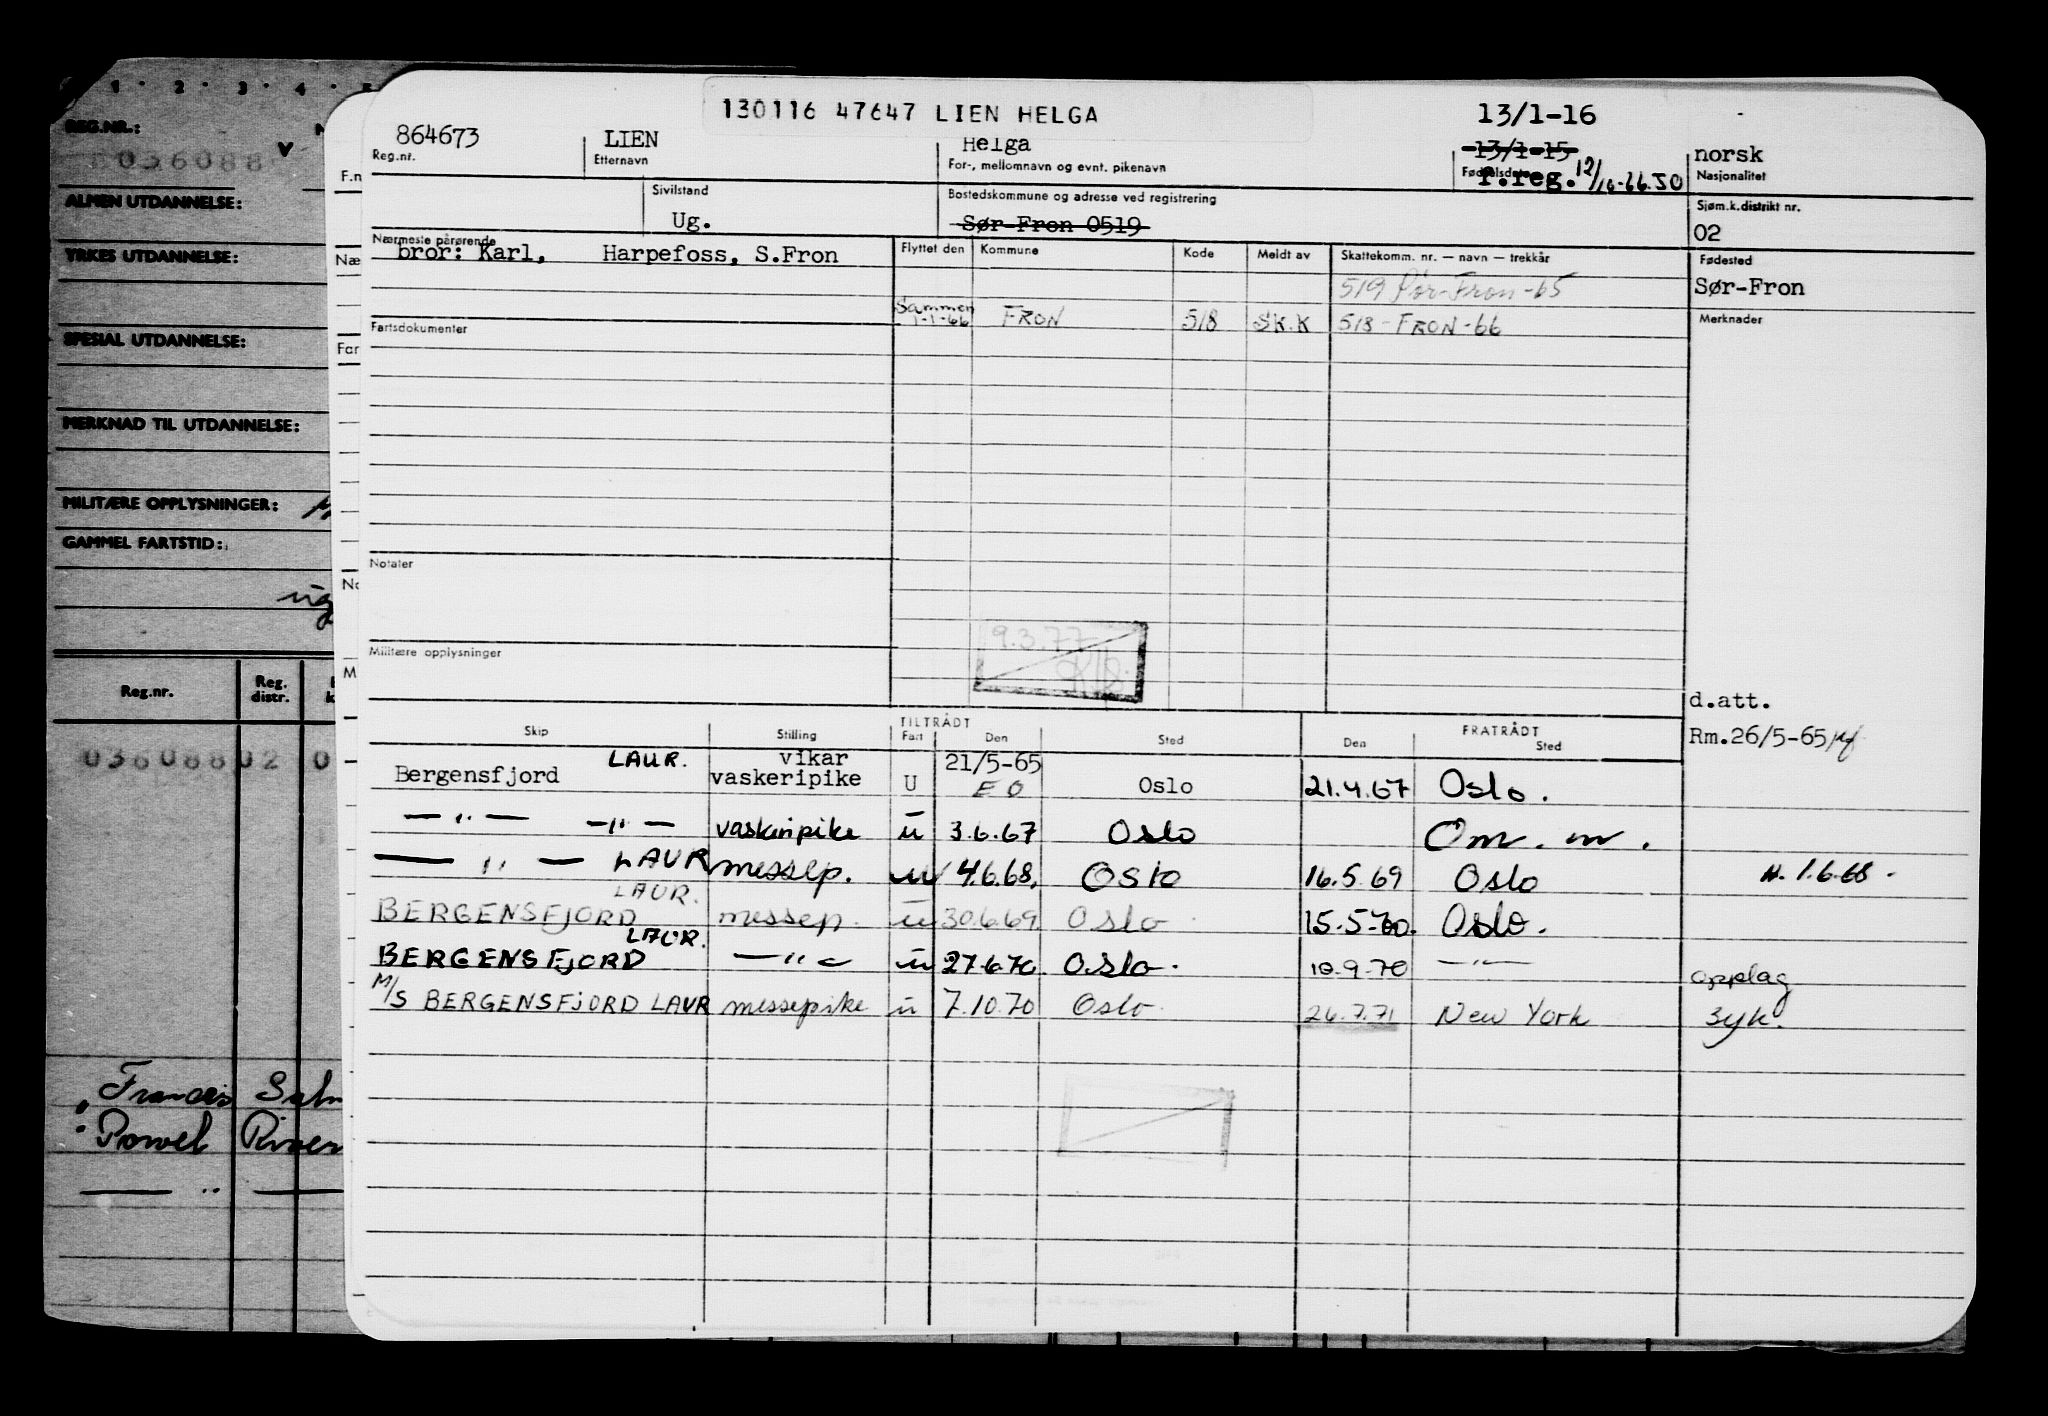 1 · 2 · 3 · 4 · 5
REG.NR.:
036088
ALMEN UTDANNELSE:
YRKES UTDANNELSE:
SPESIAL UTDANNELSE:
MERKNAD TIL UTDANNELSE:
MILITÆRE OPPLYSNINGER:
GAMMEL FARTSTID:
ug
Reg.nr. Reg. distr.
036088 02 0
Francis Saln
Powel River
— " —
F.n
Næ
Far
No
M
130116 47647 LIEN HELGA
13/1-16
864673 LIEN Helga 13/1-15 norsk
Reg.nr. Etternavn For-, mellomnavn og evnt. pikenavn Fødselsdato f.reg. 12/10-66.SO Nasjonalitet
Sivilstand Bostedskommune og adresse ved registrering Sjøm.k.distrikt nr.
Ug. Sør-Fron 0519 02
Nærmeste pårørende Flyttet den Kommune Kode Meldt av Skattekomm. nr. — navn — trekkår Fødested
bror: Karl, Harpefoss, S.Fron
519 Sør-Fron-65 Sør-Fron
Sammen 1-1-66 FRON 518 SK.K 518-FRON-66 Merknader
Fartsdokumenter
Notater
9.3.77
Militære opplysninger
d.att.
TILTRÅDT FRATRÅDT
Skip Stilling Fart Den Sted Den Sted Rm.26/5-65
Bergensfjord LAUR. vikar vaskeripike U 21/5-65 EO Oslo 21.4.67 Oslo.
— " — — " — vaskeripike u 3.6.67 Oslo Om. m.
— " — LAUR messep. u 4.6.68. Oslo 16.5.69 Oslo H. 1.6.68.
BERGENSFJORD LAUR. messep. u 30.6.69 Oslo 15.5-70. Oslo.
BERGENSFJORD LAUR. — " — u 27.6.70 Oslo. 10.9.70 — " — opplag
M/S BERGENSFJORD LAUR messepike u 7.10.70 Oslo. 26.7.71 New York syk.